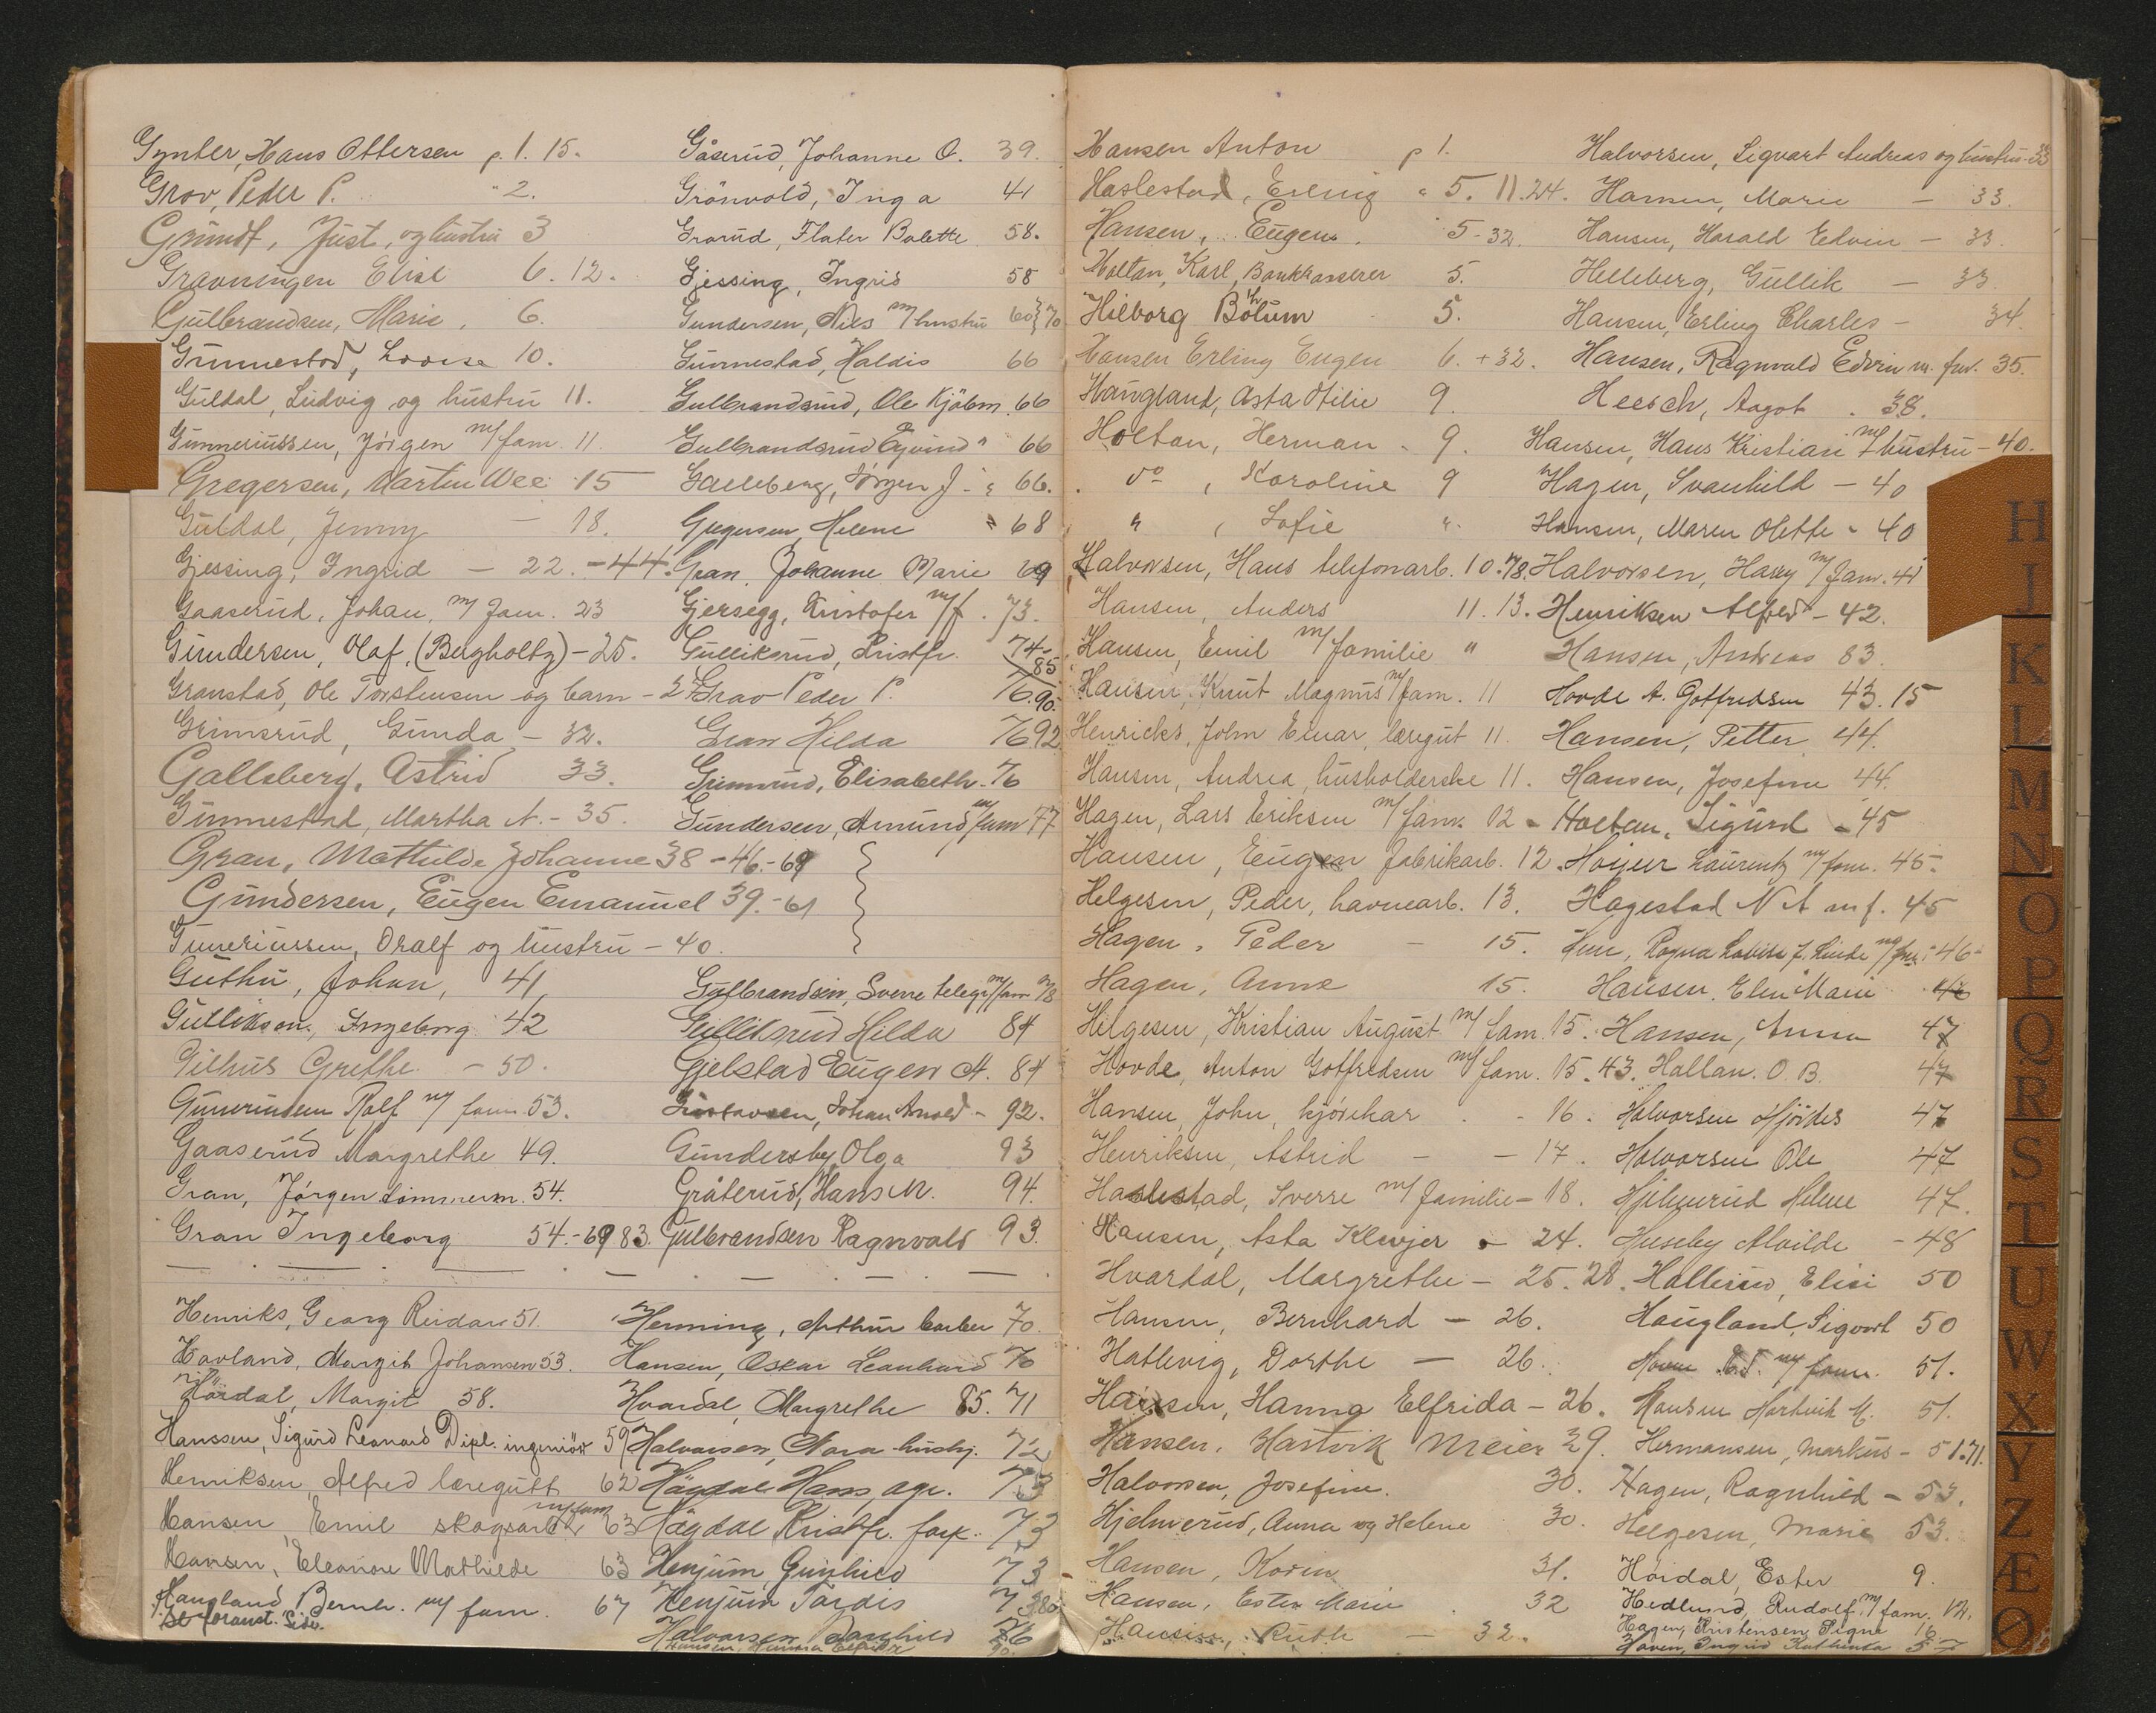 Gynter, Hans Ottersen p. 1. 15.
Grov, Peder P. " 2.
Grundt, Just, og hustru 3
Gravningen Elise 6. 12.
Gulbrandsen, Marie, 6.
Gunnestad, Lovise 10.
Guldal, Ludvig og hustru 11.
Gunneriussen, Jörgen m/fam. 11
Gregersen, Martin Wee 15
Guldal, Jenny — 18.
Gjessing, Ingrid — 22. - 44.
Gaaserud, Johan, m/ fam. 23
Gundersen, Olaf, (Bergholtz) - 25.
Granstad, Ole Torstensen og barn - 27
Grimsrud, Gunda - 32.
Gallsberg, Astrid 33.
Gunnestad, Martha A. - 35.
Gran, Mathilde Johanne 38 - 46. - 69
Gundersen, Eugen Emanuel 39. - 61
Guneriussen, Oralf og hustru - 40.
Guthu, Johan, 41
Gulliksen, Ingeborg 42
Gilhus Grethe - 50.
Guneriussen Rolf m/ fam. 53.
Gaaserud Margrethe 49.
Gran, Jørgen tömmerm. 54.
Gran Ingeborg 54. - 69 83.
Gåserud, Johanne O. 39.
Grönvold, Inga 41
Grorud, Flater Bolette 58.
Gjessing, Ingrid 58
Gundersen, Nils m/ hustru 60 } 70
Gunnestad, Haldis 66
Gulbrandsrud, Ole Kjöbm. 66
Gulbrandsrud Eyvind " 66
Galleberg, Jörgen J - " 66.
Gregersen, Helene " 68
Gran, Johanne Marie 69
Gjersegg, Kristofer m/f. 73.
Gulliksrud, Kristfr. 74-85
Grav Peder P. 76. 90.
Gran Hilda 76 92
Grimsrud, Elisabeth. 76
Gundersen, Amund m/fam 77
Gulbrandsen, Sverre telegr. m/fam 78
Gulliksrud Hilda 84
Gjelstad Eugen A. 84
Gustavsen, Johan Arnold - 92.
Gundersby, Olga 93
Gråterud, Hans M. 94.
Gulbrandsen Ragnvald 93.
Henriks, Georg Reidar 51.
Havland, Margit Johansen 53.
Höidal, Margit 58.
Hanssen, Sigurd Leonard Dipl. ingeniör 59
Henriksen, Alfred læregutt 62
Hansen, Emil skogsarb. m/fam 63
Hansen, Eleonore Mathilde 63
Haugland, Bernh. m/ fam. 67
Se foranst. side.
Henning, Arthur barber 70.
Hansen, Oskar Leonhard 70
Hvardal, Margrethe 85. 71
Halvorsen, Nora hush. 72
Hägdal Hans, agr. 73
Hägdal Kristfr. forp. 73
Henjum, Gunhild 73
Henjum Tordis 73 80
Halvorsen Ragnhild 76
Hansen, Hanna Elfrida 90.
Hansen Anton p 1.
Haslestad, Erling " 5. 11. 24.
Hansen, Eugen. 5 - 32.
Holtan, Karl, Bankkasserer 5.
Hilborg Bölum 5.
Hansen Erling Eugen 6. + 32.
Haugland, Asta Otilie 9.
Holtan, Herman - 9.
do , Karoline 9
" , Sofie ".
Halvorsen, Hans telefonarb. 10. 78.
Hansen, Anders 11. 13.
Hansen, Emil m/familie "
Hansen, Knut Magnus m/fam. 11
Henricks, John Einar, læregut 11.
Hansen, Andrea, husholderske 11.
Hagen, Lars Eriksen m/ fam. 12
Hansen, Eugen fabrikarb. 12.
Helgesen, Peder, havnearb. 13.
Hagen, Peder - 15.
Hagen, Anne 15.
Helgesen, Kristian August m/ fam. 15.
Hovde, Anton Gotfredsen m/ fam. 15. 43.
Hansen, John, kjörekar - 16.
Henriksen, Astrid - - 17.
Haslestad, Sverre m/ familie - 18.
Hansen, Asta Klevjer - 24.
Hvardal, Margrethe - 25. 28.
Hansen, Bernhard - 26.
Hatlevig, Dorthe — 26.
Hansen, Hanna Elfrida - 26.
Hansen, Hartvik Meier 29.
Halvorsen, Josefine. 30.
Hjelmerud, Anna og Helene 30.
Hansen, Karin 31.
Hansen, Ester Marie 32
Hansen, Ruth - 32.
Halvorsen, Sigvart Andreas og hustru - 33
Hansen, Marie - 33.
Hansen, Harald Edvin - 33.
Helleberg, Gullik - 33
Hansen, Erling Charles - 34.
Hansen, Ragnvald Edvin m. fru. 35.
Heesch, Aagot. 38.
Hansen, Hans Kristian m/ hustru - 40.
Hagen, Svanhild - 40
Hansen, Maren Olette - 40
Halvorsen, Harry m/ fam. 41
Henriksen Alfred - 42.
Hansen, Andreas 83.
Hovde A. Gotfredsen 43. 15
Hansen, Petter 44.
Hansen, Josefine 44.
Holtan, Sigurd - 45
Höyer Laurentz m/ fam. 45.
Hagestad N A m f. 45
Ragna Lovise f. Linde 46
Hansen, Elen Marie 46
Hansen, Anna 47
Hallan. O. B. 47
Halvorsen Hjördis 47
Halvorsen Ole 47
Hjelmerud Helene 47.
Huseby Alvilde - 48
Hallerud, Elise 50
Haugland, Sigvart 50
m/ fam. 51.
Hansen Hartvik M. 51.
Hermansen, Markus - 51. 71.
Hagen, Ragnhild - 53.
Helgesen, Marie 53.
Höidal, Ester 9.
Hedlund, Rudolf m/ fam. 12.
Hagen, Kristensen Signe 16
Haven, Ingrid Kathinka 57
H
I
J
K
L
M
N
O
P
Q
R
S
T
U
W
X
Y
Z
Æ
Ø